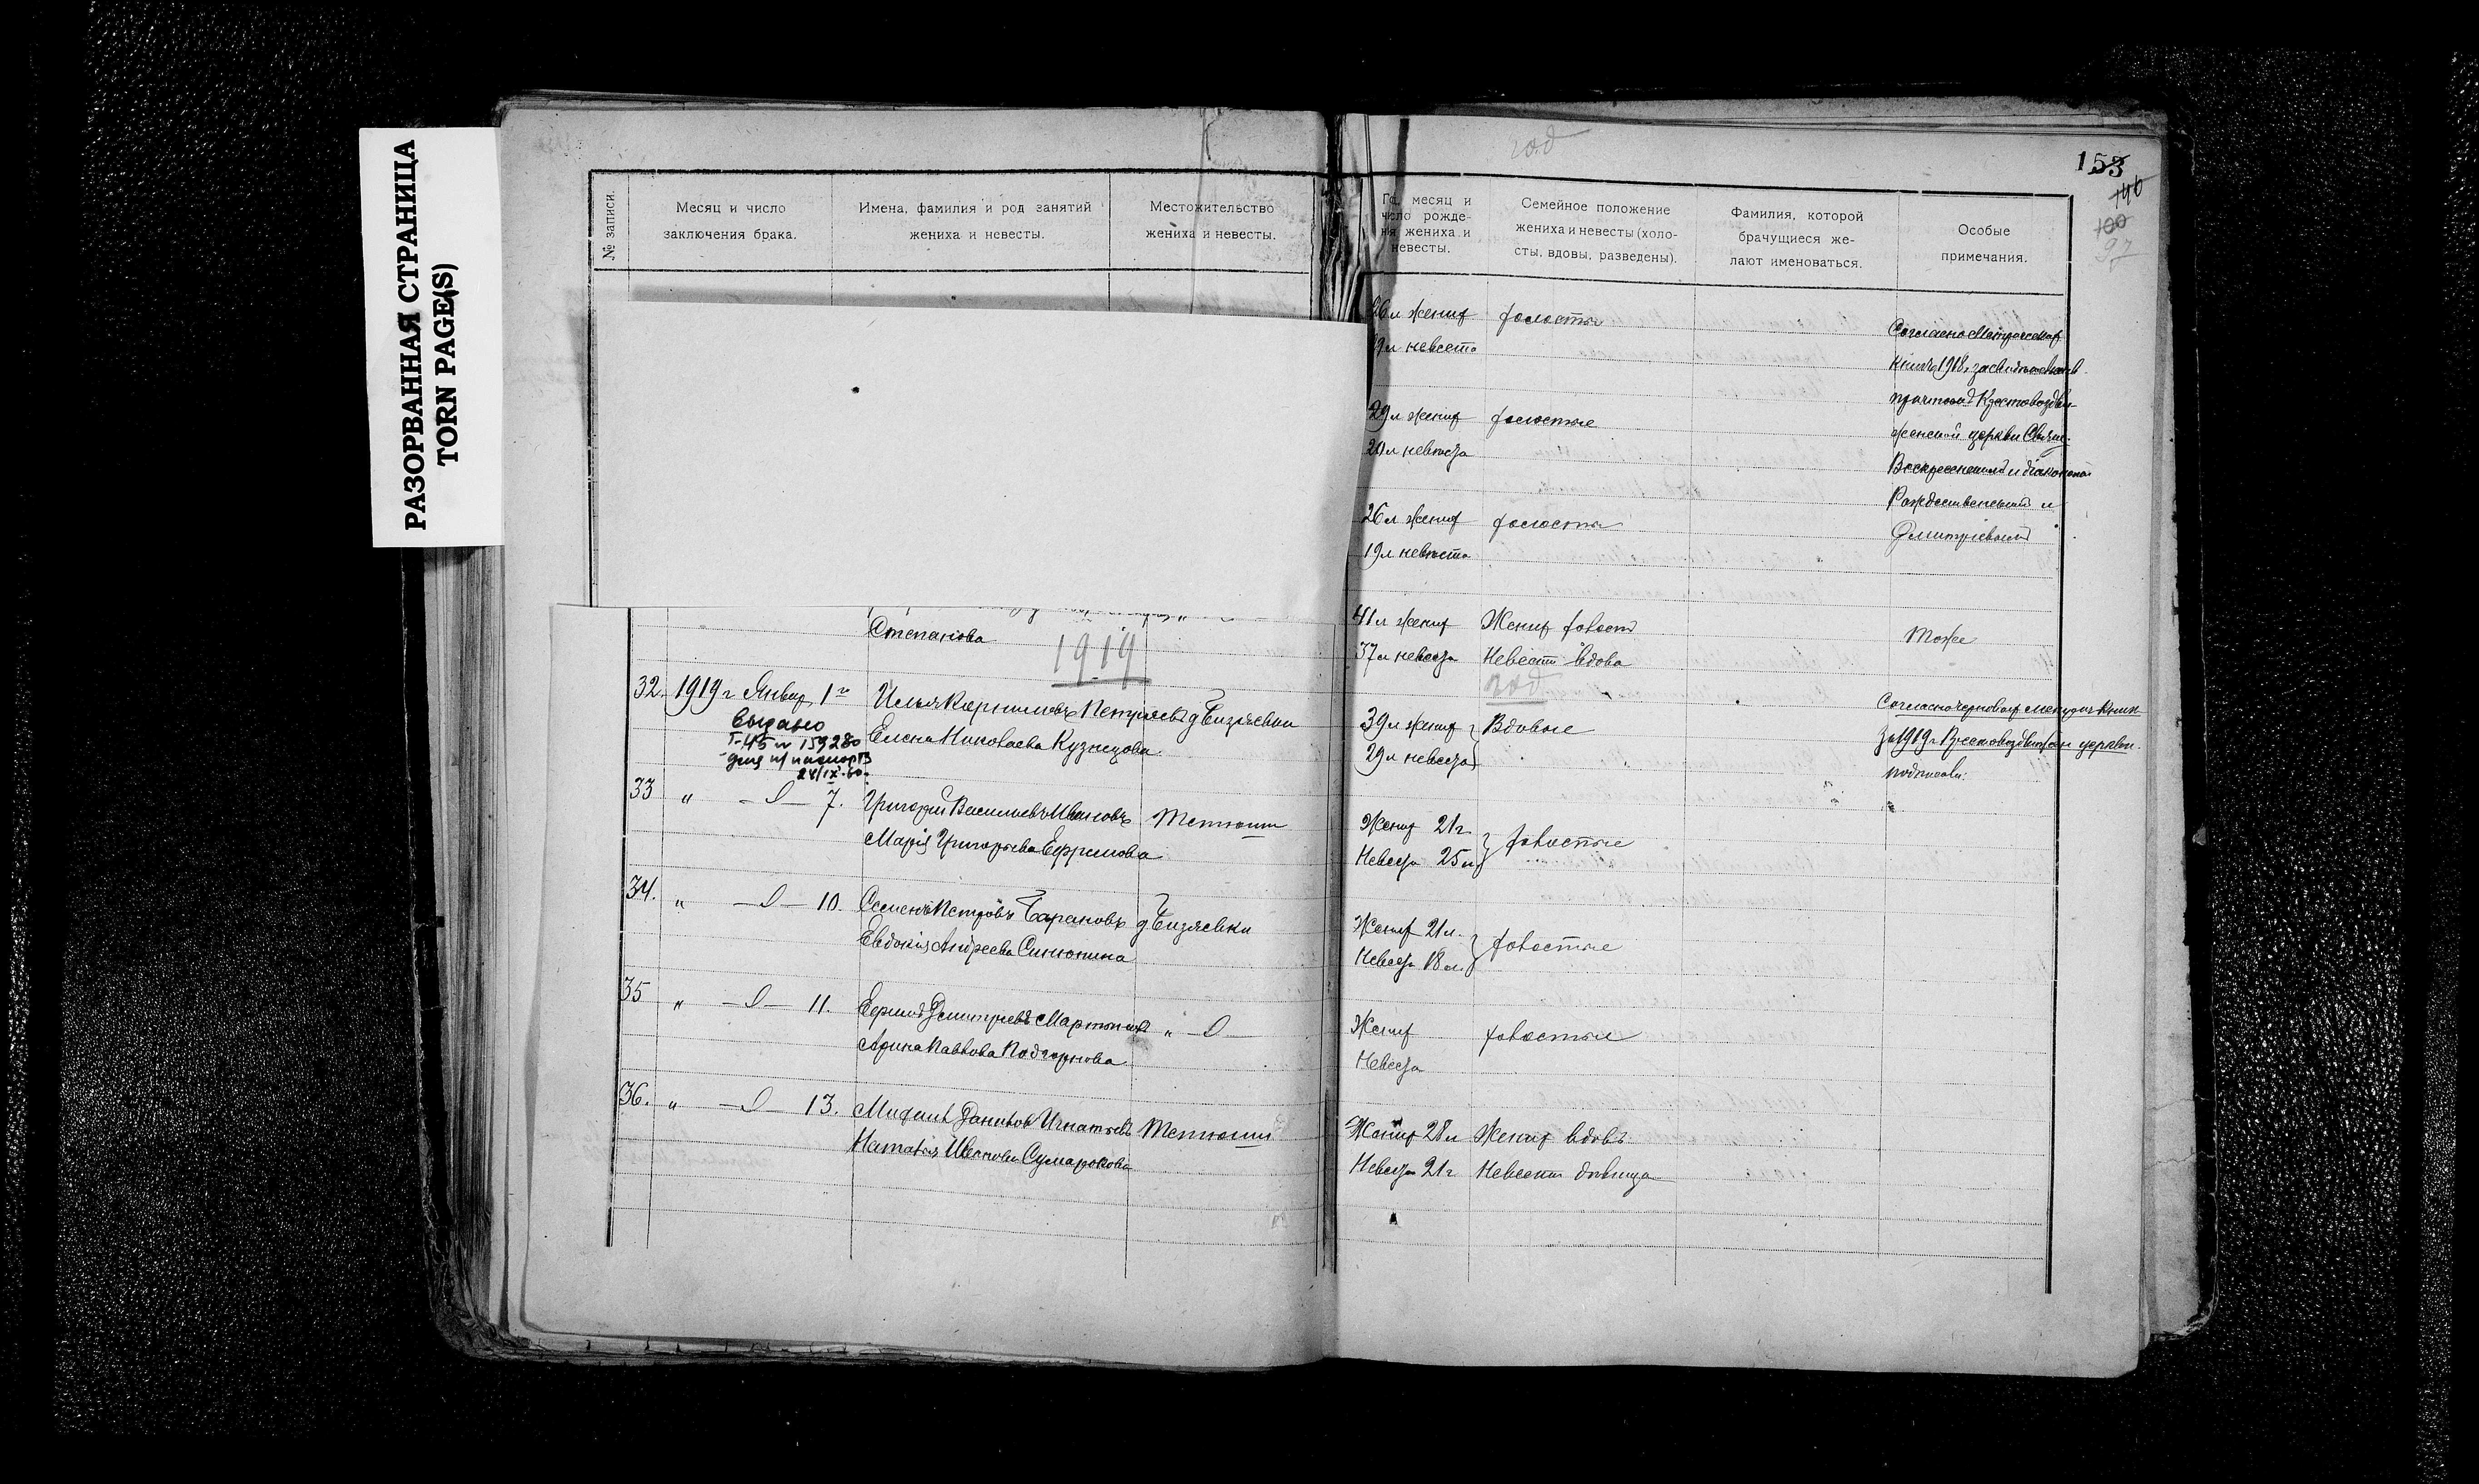 РАЗОРВАННАЯ СТРАНИЦА
TORN PAGE(S)
№ записи.
Месяц и число
заключения брака.
Имена, фамилия и род занятий
жениха и невесты.
Местожительство
жениха и невесты.
Степанова
1919
32. 1919 г Январ 1го Илья Корниловъ д Бизяевки
Елена Николаева Кузнецова
выдано
I-45 № 159280
для п/ паспорта
24/IX-60.
33 " 7. Григорий Васильевъ Ивановъ Тетюши
Мария Григорьева Ефремова
34. " 10. Семенъ Петровъ Барановъ д Бизяевки
Евдокия Андреева Синюкина
35 " 11. Ефимъ Дмитриевъ Мартынов "
Павлова Подгорнова
36. " 13. Михаил Данилов Игнатьевъ Тетюши
Наталья Иванова Сумарокова
год
153
146
100
97
Год, месяц и
число рожде-
ния жениха и
невесты.
Семейное положение
жениха и невесты (холо-
сты, вдовы, разведены).
Фамилия, которой
брачущиеся же-
лают именоваться.
Особые
примечания.
26 л жених холосты
19 л невеста
29 л жених холостые
20 л невеста
26 л жених холосты
19 л невеста
Согласно
книгъ 1918г
Крестовоздви-
женской церкви Свящ.
Воскресенский и диаконами
Рождественский и
Дмитриевский
41 л жених Жених холост
37 л невеста Невеста вдова
тоже
год
39 л жених } Вдовые
29 л невеста
Согласно черновых книг
за 1919 г Крестовоздвижен церкви.
Жених 21 г } холостые
Невеста 25 л
Жених 21 л. } холостые
Невеста 18 л.
Жених холостые
Невеста
Жених 28 л Жених вдовъ
Невеста 21 г Невеста девица